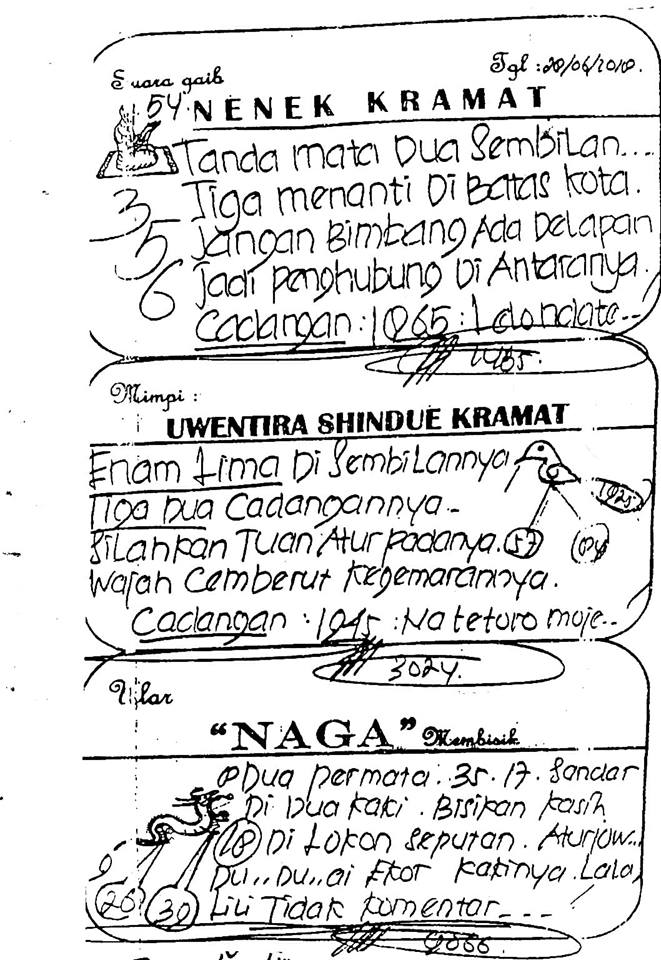 Suara gaib
Tgl : 28/06/2018.
54. NENEK KRAMAT
Tanda mata Dua Sembilan...
3 Tiga menanti Di Batas kota.
5 Jangan Bimbang Ada Delapan
6 Jadi penghubung Di Antaranya.
Cadangan : 1865 :
Mimpi :
UWENTIRA SHINDUE KRAMAT
Enam Lima Di SembiLannya
Tiga Dua Cadangannya..
SiLahkan Tuan Atur padanya. 57
Wajah Cemberut kegemarannya.
Cadangan : 1945 : Na teturo moje..
3024.
Ular
"NAGA" Membisik
Dua permata. 35. 17. Sandar
Di Dua kaki. Bisikan kasih
18 Di Lokon seputan. Aturjow...
Du..Du..ai Ekor kakinya. Lala,
26 30 Lili Tidak komentar...